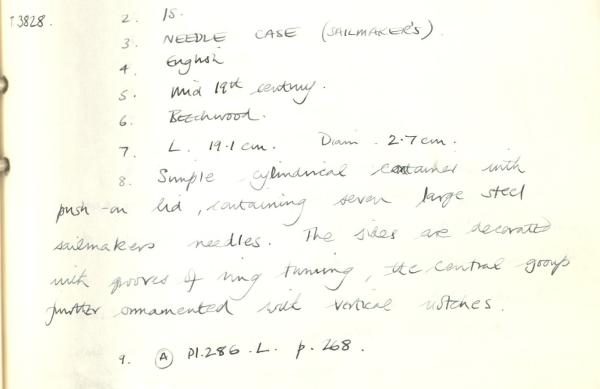 T.3828. 2. IS.
3. NEEDLE CASE (SAILMAKER'S).
4. English
5. Mid 19th century.
6. Beechwood.
7. L. 19.1 cm. Diam. 2.7 cm.
8. Simple cylindrical container with
push-on lid, containing seven large steel
sailmakers needles. The sides are decorated
with grooves & ring turning, the central group
further ornamented with vertical notches.
9. (A) Pl. 286. L. p. 268.